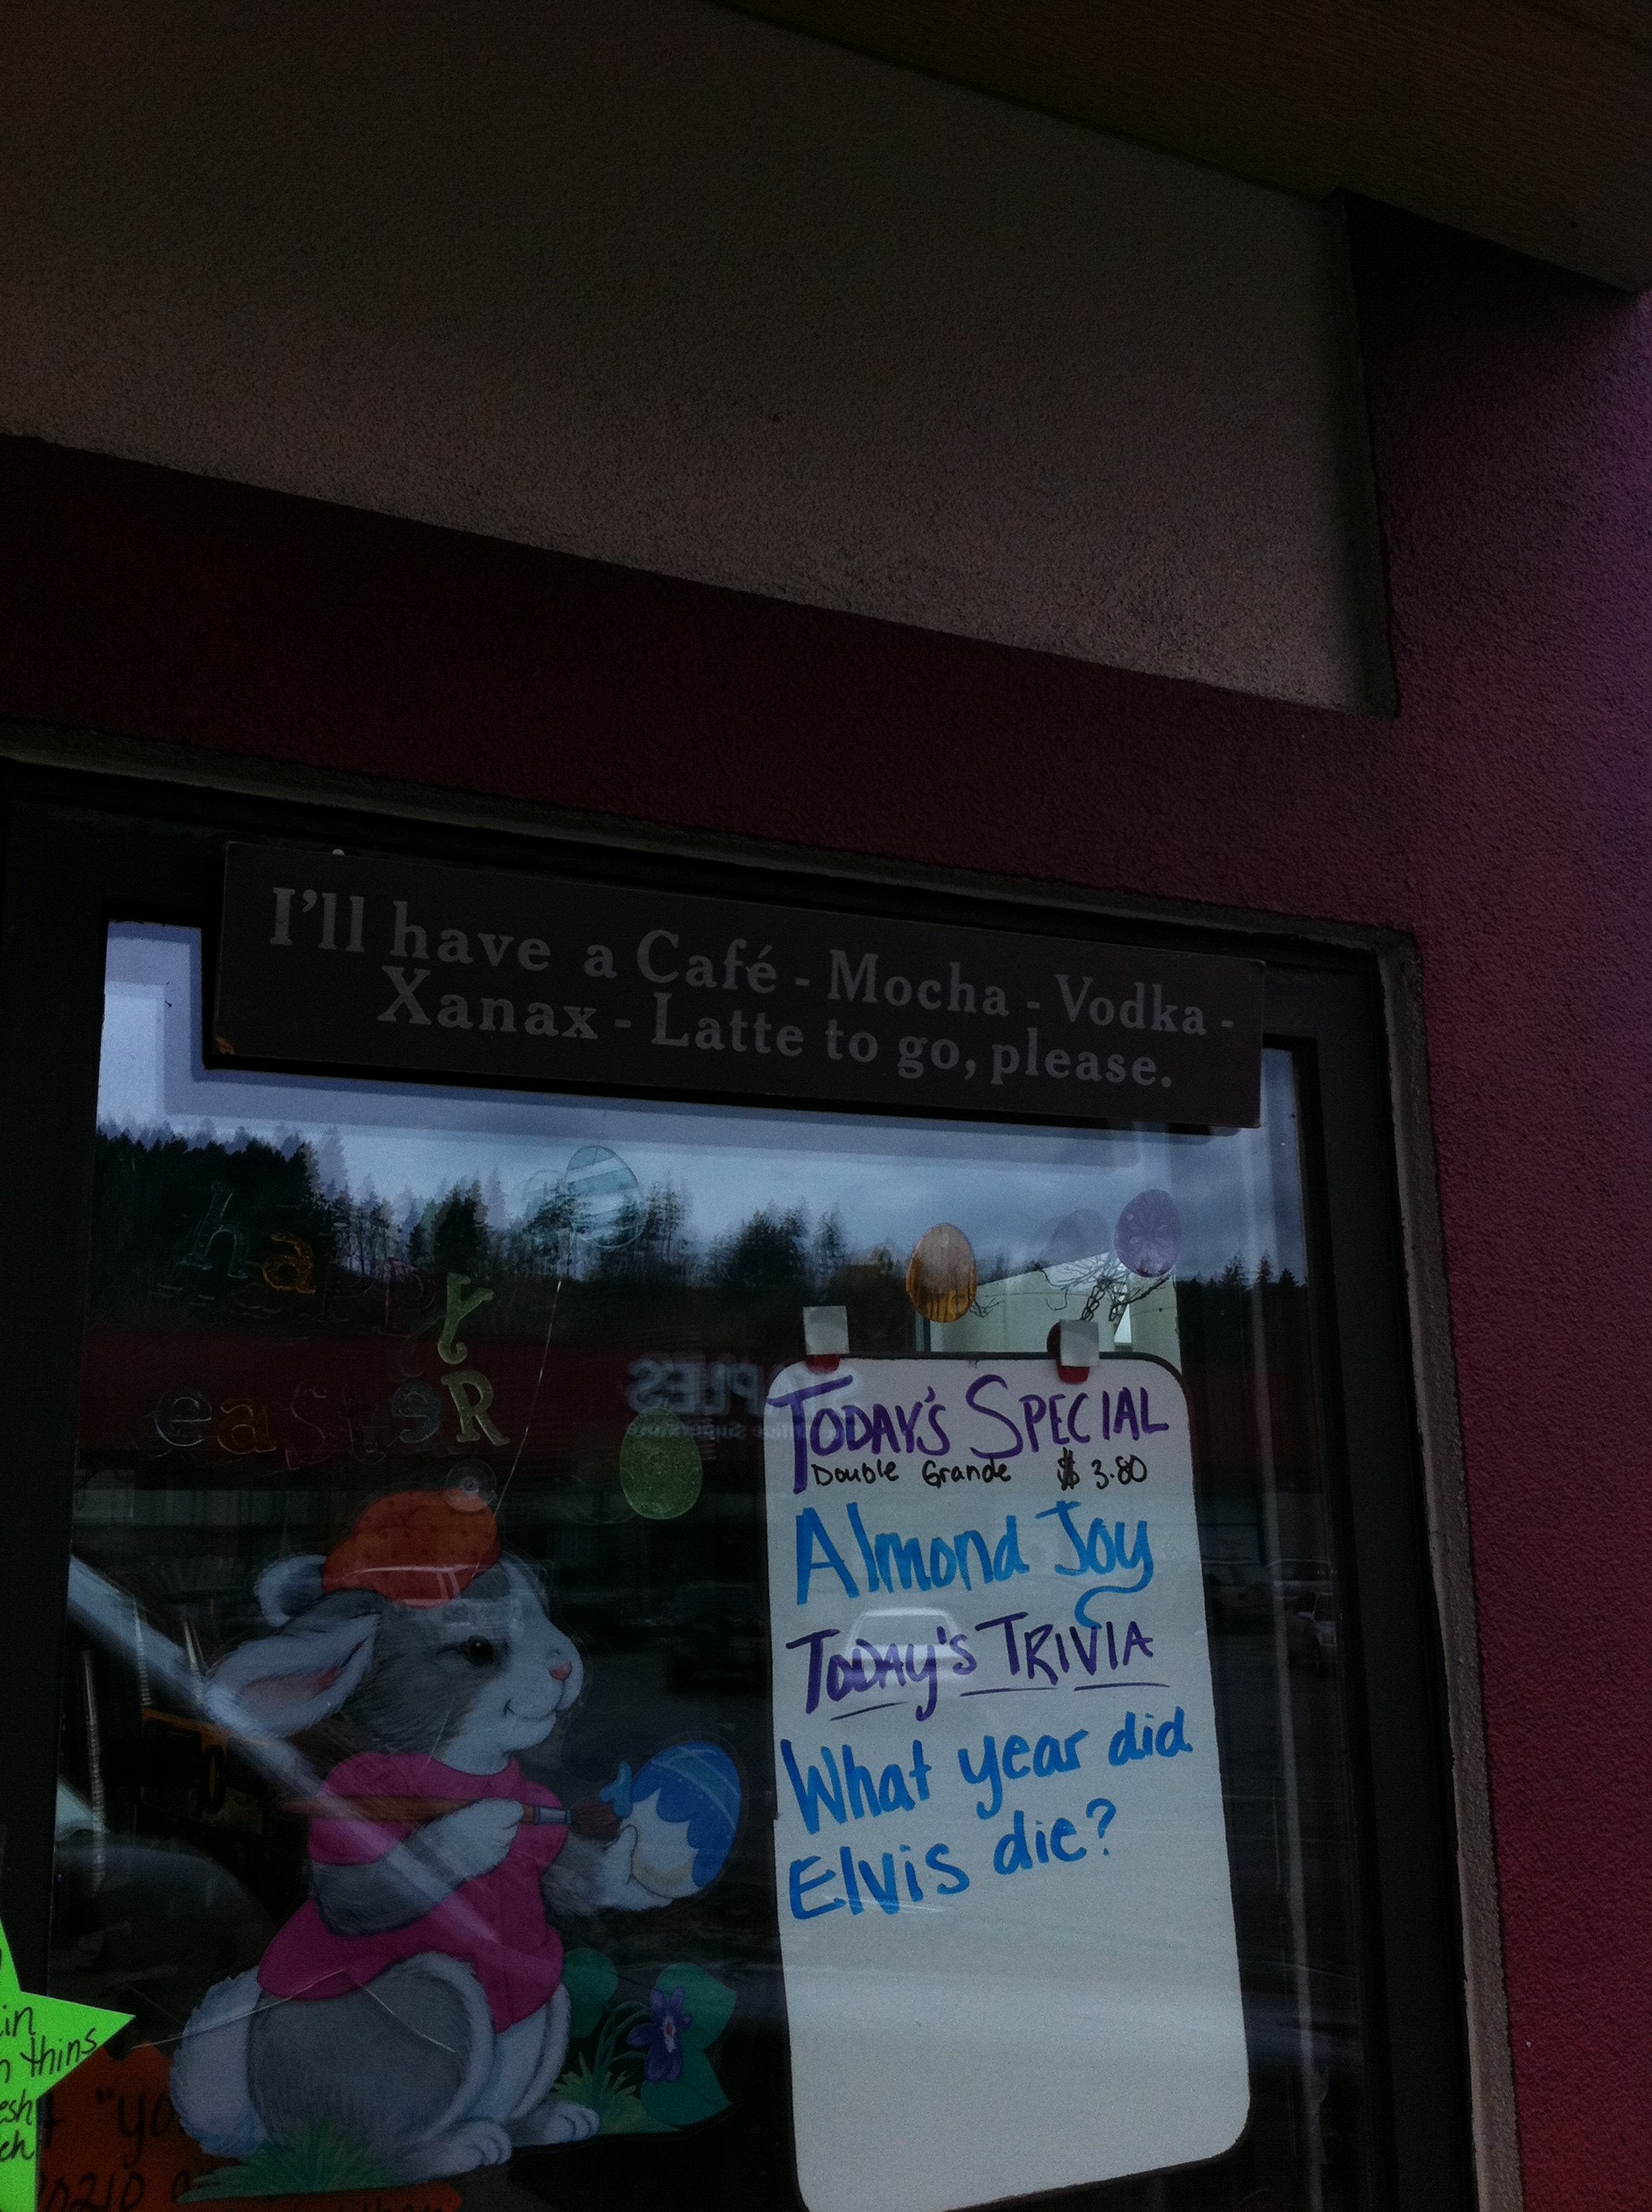 I'll have a Café - Mocha - Vodka -
Xanax - Latte to go, please.
happy
easter
TODAY'S SPECIAL
Double Grande $3.80
Almond Joy
TODAY'S TRIVIA
What year did
Elvis die?
thins